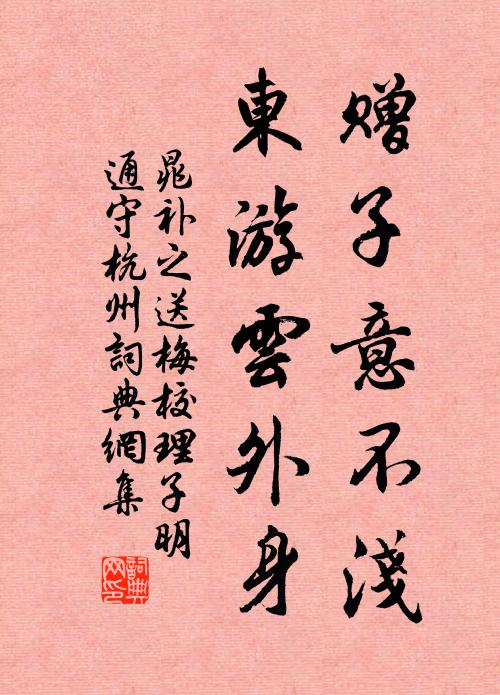 赠子意不淺
東游雲外身
晁补之送梅校理子明
通守杭州詞典網集
詞典
网印